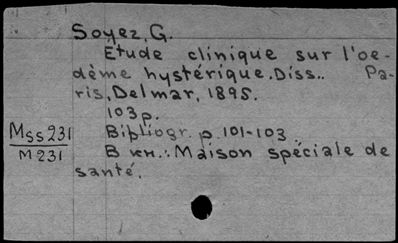 Soyez, G.
Étude clinique sur l'oe-
dème hystérique. Diss.. Pa-
ris, Delmar, 1895.
103 p.
Bibliogr. p. 101-103
В кн.: Maison spéciale de
santé.
Mss 231
M 231